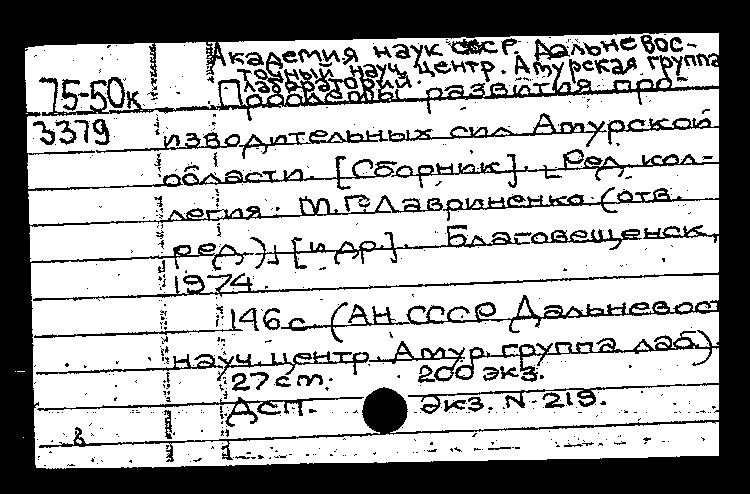 Академия наук СССР. Дальневос-
точный науч. центр. Амурская группа
лабораторий.
75-50к Проблемы развития про-
3379 изводительных сил Амурской
области. [Сборник]. [Ред. кол-
легия: М.Г. Лавриненко (отв.
ред.), [и др.]. Благовещенск,
1974.
146 с. (АН СССР Дальневост
науч. центр. Амур. группа лаб.)
27 см. 200 экз.
ДСП. Экз. N 219.
8